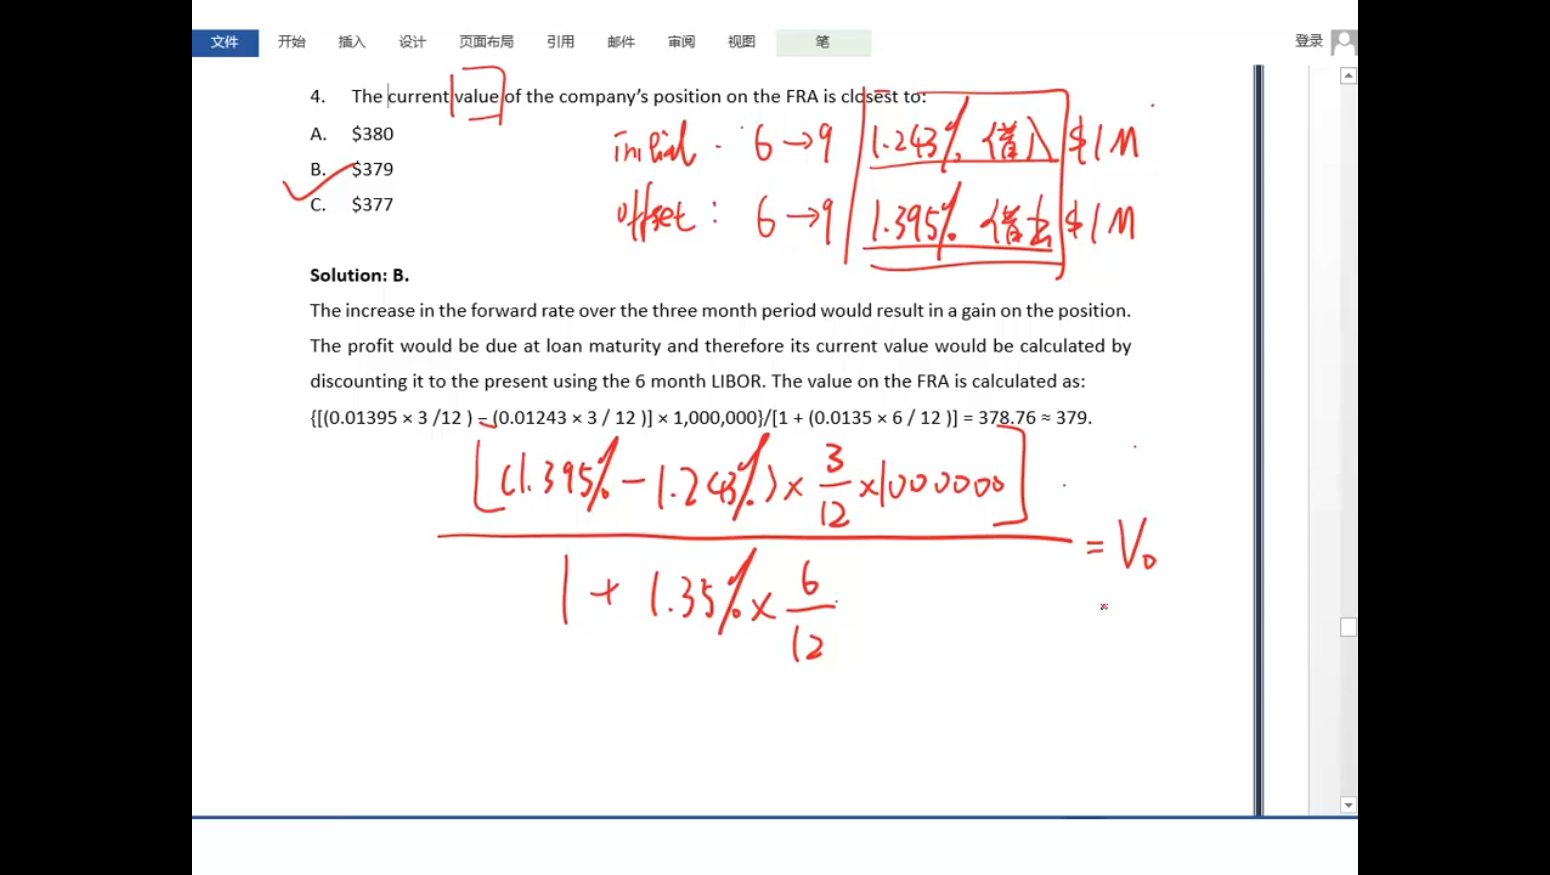 文件 开始 插入 设计 页面布局 引用 邮件 审阅 视图 笔 登录
4. The current value of the company's position on the FRA is closest to:
A. $380
initial · 6→9 1.243% 借入 $1M
B. $379
C. $377
offset : 6→9 1.395% 借出 $1M
Solution: B.
The increase in the forward rate over the three month period would result in a gain on the position.
The profit would be due at loan maturity and therefore its current value would be calculated by
discounting it to the present using the 6 month LIBOR. The value on the FRA is calculated as:
{[(0.01395 × 3 /12 ) – (0.01243 × 3 / 12 )] × 1,000,000}/[1 + (0.0135 × 6 / 12 )] = 378.76 ≈ 379.
[(1.395% - 1.243%) × 3/12 × 1000000]
= V0
1 + 1.35% × 6/12